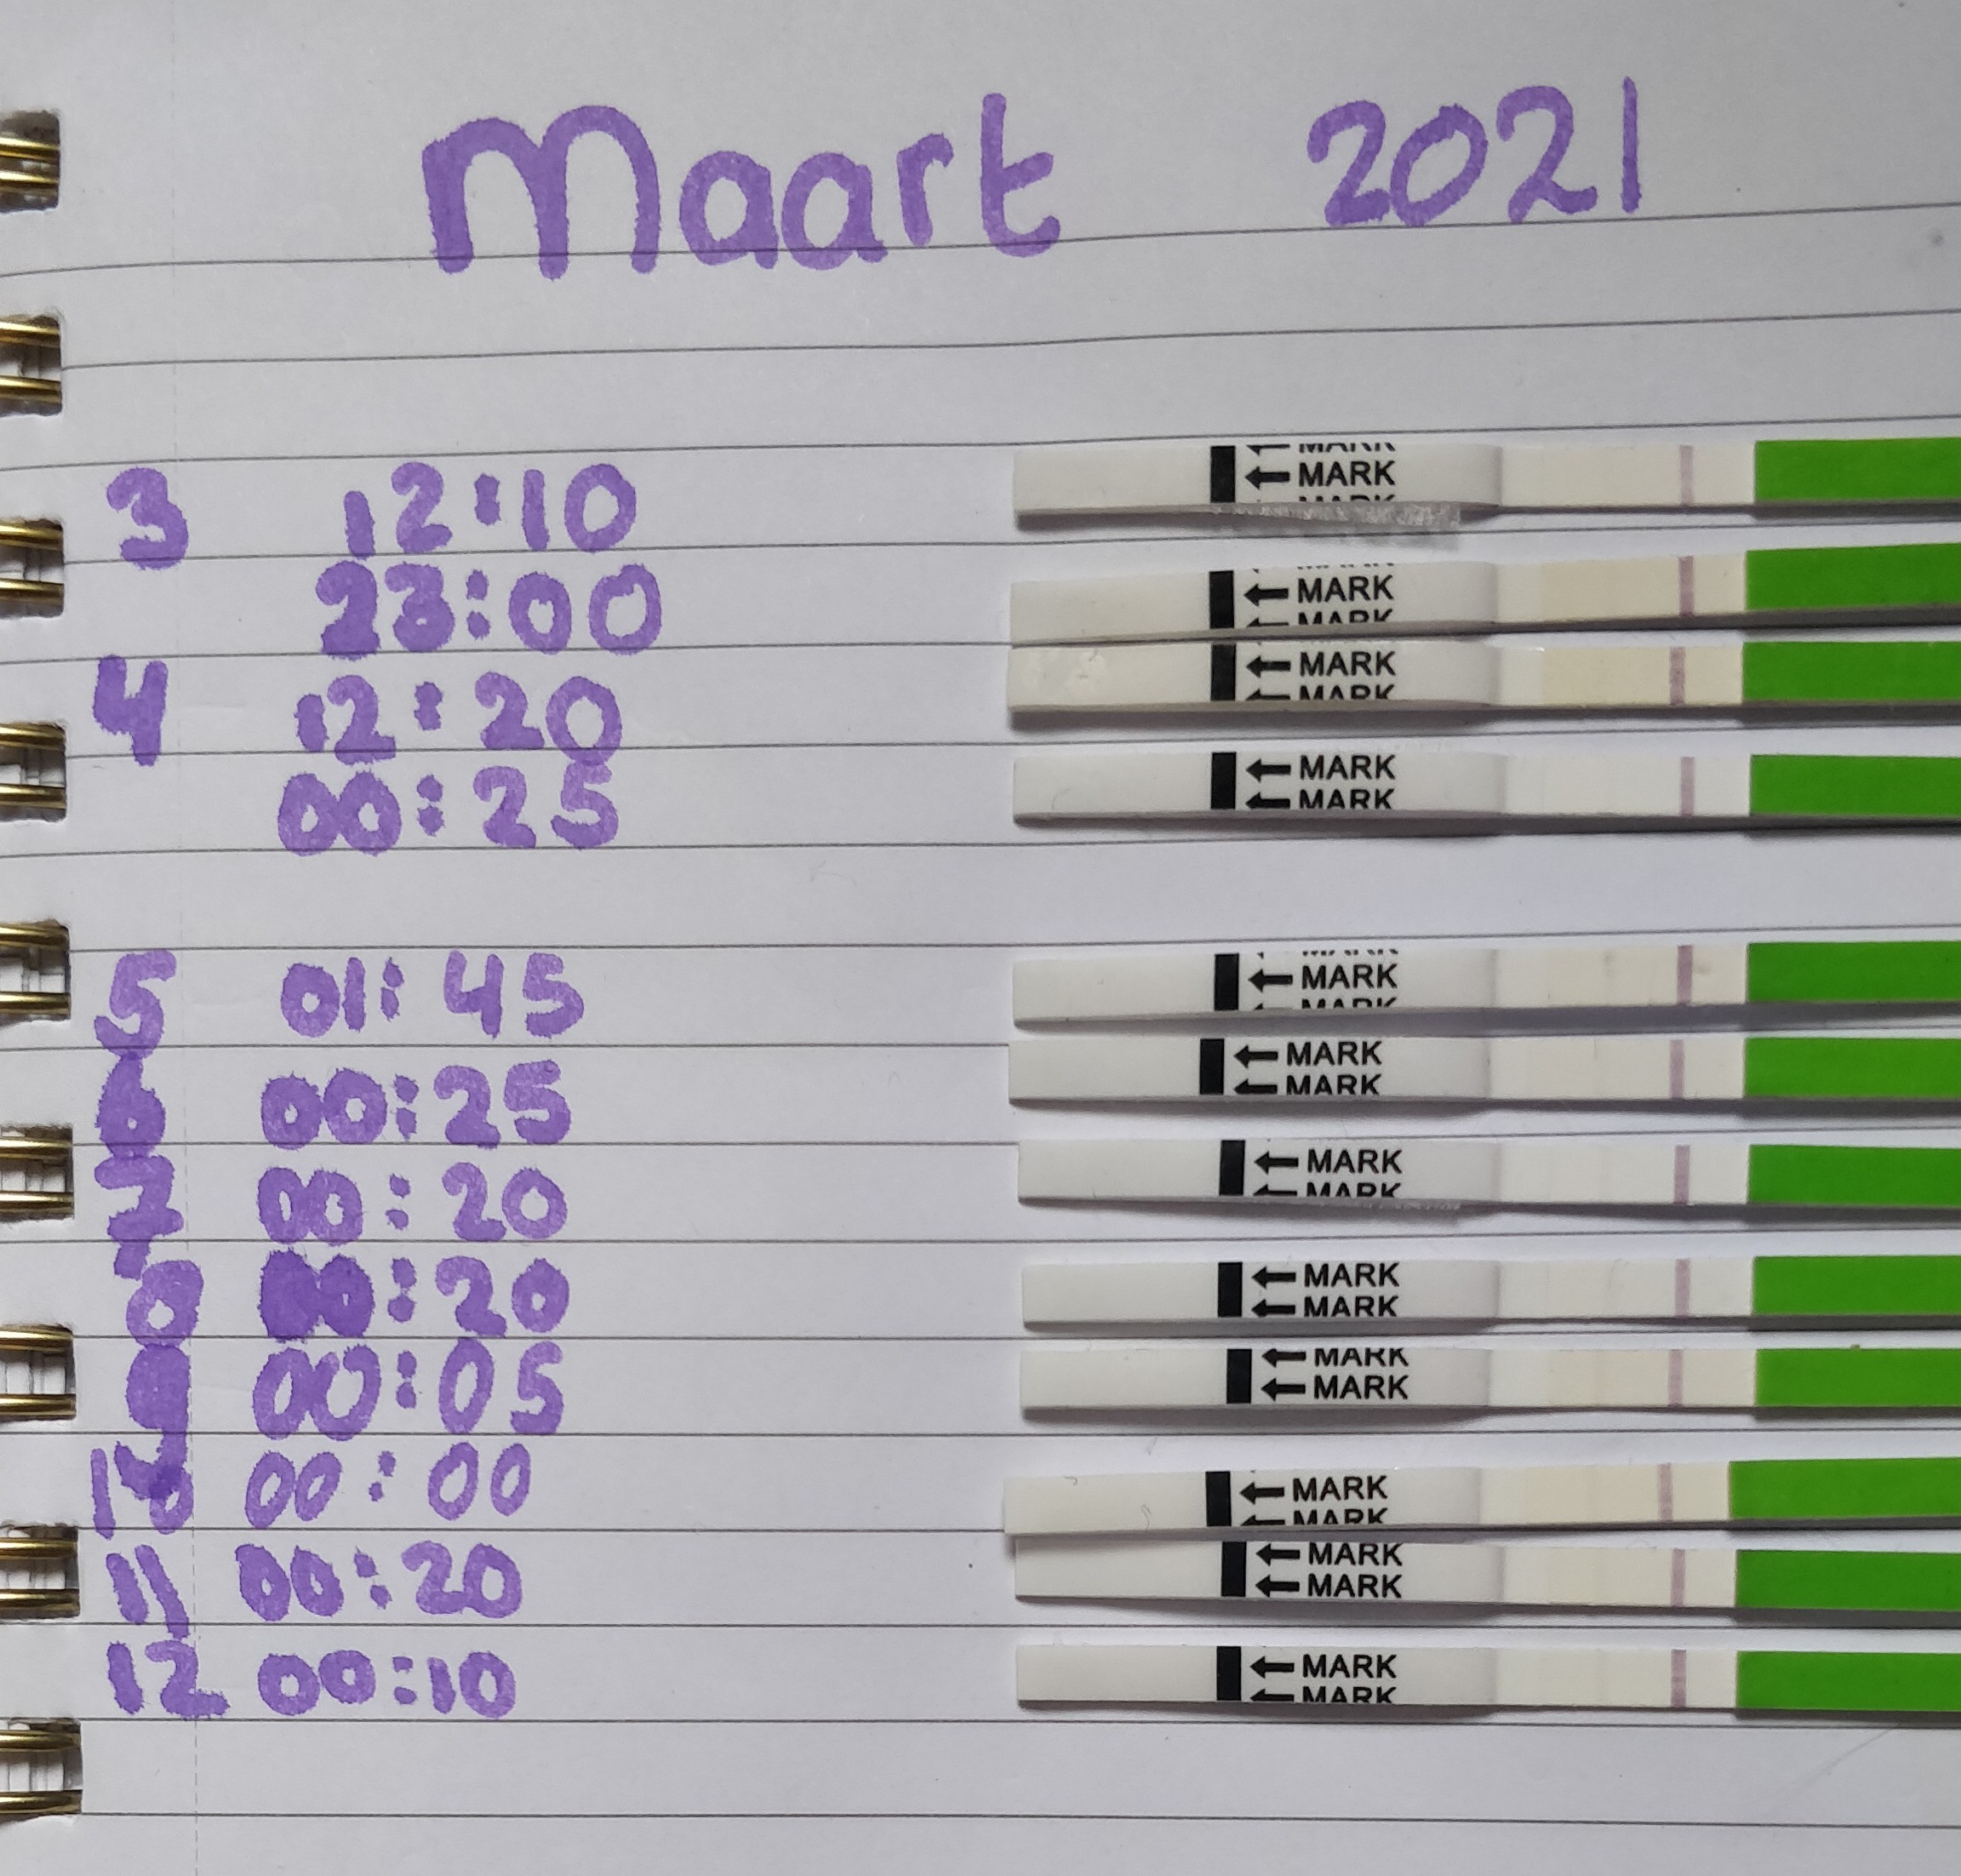 Maart 2021
MARK
3 12:10 ← MARK
MARK
23:00 ← MARK
MARK
4 12:20 ← MARK
MARK
00:25 ← MARK
← MARK
MARK
5 01:45 ← MARK
MARK
6 00:25 ← MARK
← MARK
7 00:20 ← MARK
← MARK
8 00:20 ← MARK
← MARK
9 00:05 ← MARK
← MARK
10 00:00 ← MARK
← MARK
11 00:20 ← MARK
← MARK
12 00:10 ← MARK
← MARK